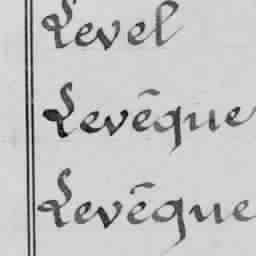 Level
Levêque
Levêque